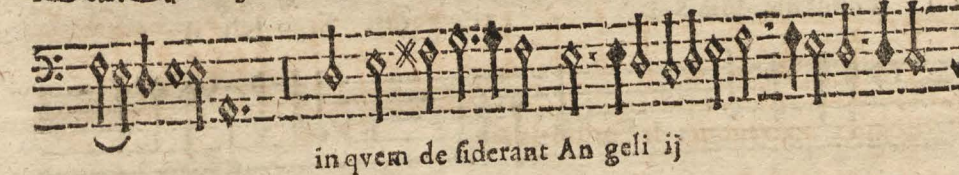 in qvem de siderant An geli ij